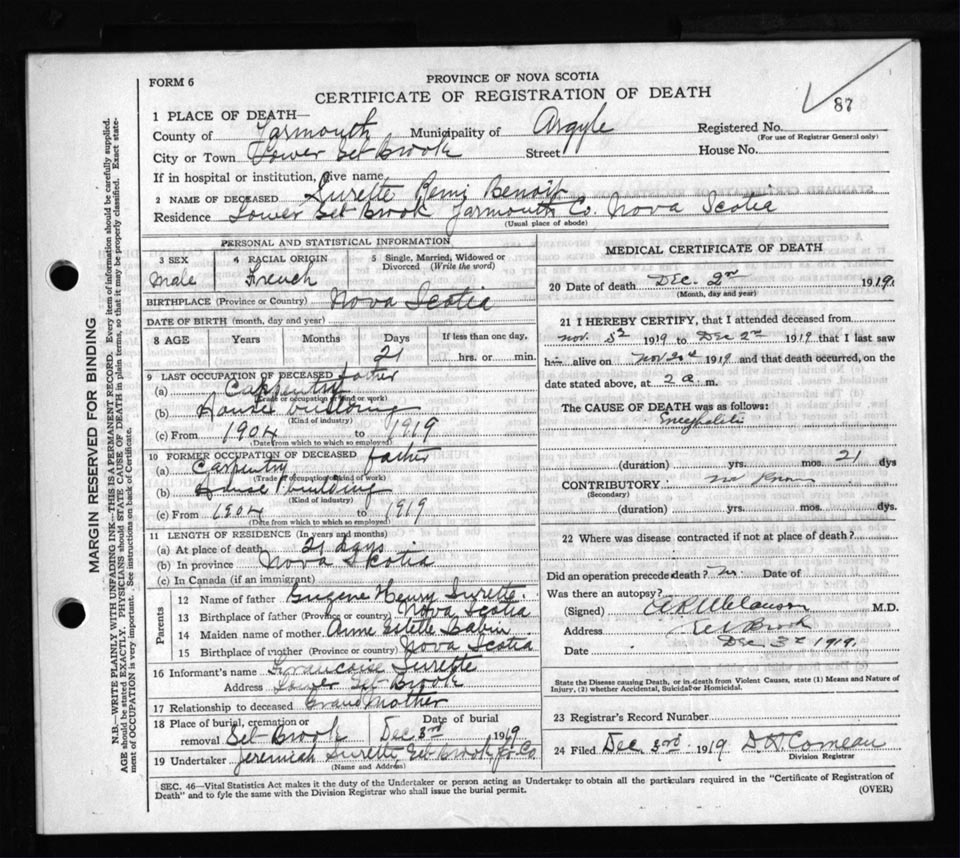 FORM 6
PROVINCE OF NOVA SCOTIA
CERTIFICATE OF REGISTRATION OF DEATH
87
1 PLACE OF DEATH—
County of Yarmouth Municipality of Argyle Registered No.
(For use of Registrar General only)
City or Town Lower Eel Brook Street House No.
If in hospital or institution, give name
2 NAME OF DECEASED Surette Remi Benoit
Residence Lower Eel Brook Yarmouth Co. Nova Scotia
(Usual place of abode)
PERSONAL AND STATISTICAL INFORMATION
3 SEX 4 RACIAL ORIGIN 5 Single, Married, Widowed or Divorced (Write the word)
Male French
BIRTHPLACE (Province or Country) Nova Scotia
DATE OF BIRTH (month, day and year)
8 AGE Years Months Days If less than one day,
21 hrs. or min.
9 LAST OCCUPATION OF DECEASED father
(a) Carpentry
(Trade or occupation/kind or work)
(b) House building
(Kind of industry)
(c) From 1904 to 1919
(Date from which to which so employed)
10 FORMER OCCUPATION OF DECEASED father
(a) Carpentry
(Trade or occupation/kind of work)
(b) House building
(Kind of industry)
(c) From 1904 to 1919
(Date from which to which so employed)
11 LENGTH OF RESIDENCE (In years and months)
(a) At place of death 21 days
(b) In province Nova Scotia
(c) In Canada (if an immigrant)
Parents
12 Name of father Eugene Henry Surette.
13 Birthplace of father (Province or Country) Nova Scotia
14 Maiden name of mother Anne
15 Birthplace of mother (Province or Country) Nova Scotia
16 Informant's name Francoise Surette
Address Lower Eel Brook
17 Relationship to deceased Grand Mother
18 Place of burial, cremation or removal Eel Brook Date of burial Dec 3rd 1919
19 Undertaker Jeremiah Surette, Eel Brook, Yar. Co.
(Name and Address)
MEDICAL CERTIFICATE OF DEATH
20 Date of death Dec. 2nd 1919
(Month, day and year)
21 I HEREBY CERTIFY, that I attended deceased from
Nov. 1919 to Dec 2nd 1919 that I last saw
him alive on Nov 1919 and that death occurred, on the
date stated above, at 2 a. m.
The CAUSE OF DEATH was as follows:
(duration) yrs. mos. 21 dys
CONTRIBUTORY
(Secondary)
(duration) yrs. mos. dys.
22 Where was disease contracted if not at place of death?
Did an operation precede death? No Date of
Was there an autopsy?
(Signed) M.D.
Address Eel Brook
Date Dec 3rd 1919.
State the Disease causing Death, or in death from Violent Causes, state (1) Means and Nature of Injury, (2) whether Accidental, Suicidal or Homicidal.
23 Registrar's Record Number
24 Filed Dec. 3rd 1919 Comeau
Division Registrar
SEC. 46—Vital Statistics Act makes it the duty of the Undertaker or person acting as Undertaker to obtain all the particulars required in the "Certificate of Registration of
Death" and to fyle the same with the Division Registrar who shall issue the burial permit.
(OVER)
MARGIN RESERVED FOR BINDING
N.B.—WRITE PLAINLY WITH UNFADING INK—THIS IS A PERMANENT RECORD. Every item of information should be carefully supplied.
AGE should be stated EXACTLY. PHYSICIANS should STATE CAUSE OF DEATH in plain terms, so that it may be properly classified. Exact statement
of OCCUPATION is very important. See instructions on back of Certificate.